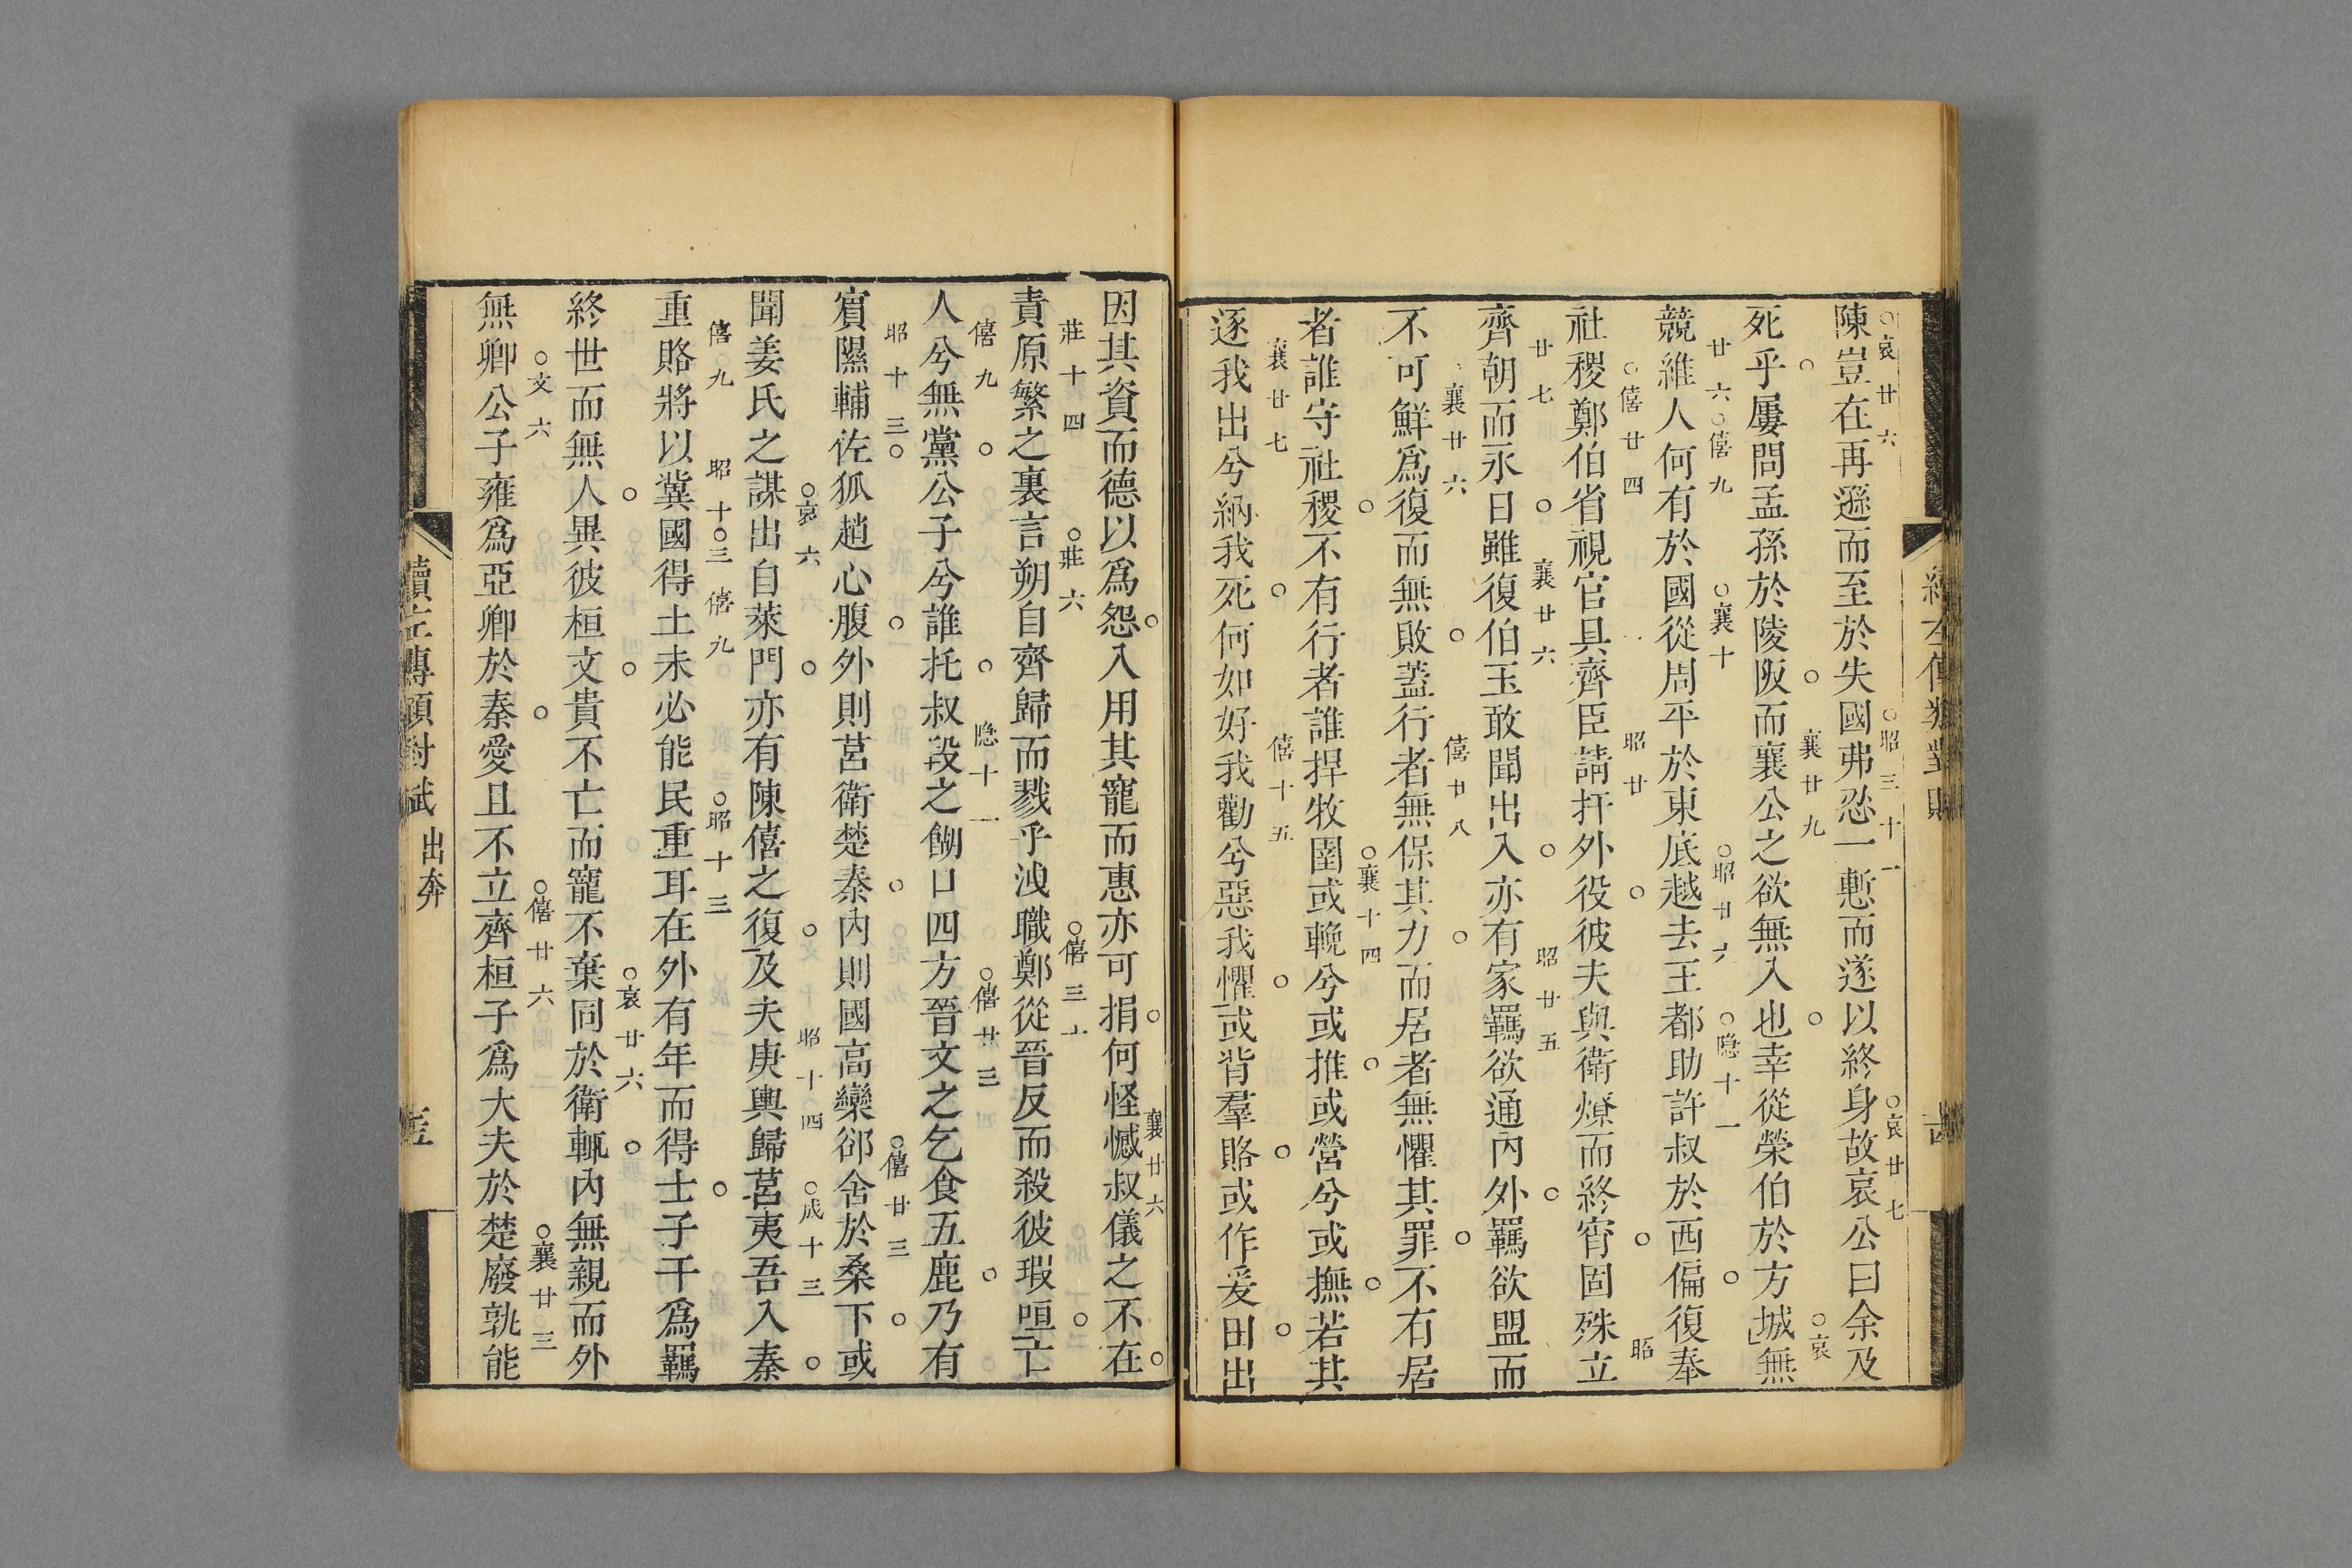 陳豈在再遜而至於失國弗忍一慙而遂以終身故哀公曰余及
○哀廿六 ○昭三十一 ○哀廿七
死乎屢問孟孫於陵阪而襄公之欲無入也幸從榮伯於方城無
○ ○襄廿九 ○ ○哀
競維人何有於國從周平於東底越去王都助許叔於西偏復奉
廿六○僖九 ○襄十 ○昭廿六 ○隐十一 ○
社稷鄭伯省視官具齊臣請扞外役彼夫與衛燎而終宵固殊立
○僖廿四 昭廿 ○ ○ 昭
齊朝而永日雖復伯玉敢聞出入亦有家羈欲通內外羈欲盟而
廿七 ○ 襄廿六 ○ 昭廿五 ○
不可鮮爲復而無敗蓋行者無保其力而居者無懼其罪不有居
襄廿六 ○ 僖廿八 ○ ○
者誰守社稷不有行者誰捍牧圉或輓兮或推或營兮或撫若其
○ ○襄十四 ○ ○
逐我出兮納我死何如好我勸兮惡我懼或背羣賂或作爰田出
襄廿七 ○ 僖十五 ○ ○ ○
因其資而德以爲怨入用其寵而惠亦可捐何怪憾叔儀之不在
○ ○ 襄廿六 ○
責原繁之裏言朔自齊歸而戮乎洩職鄭從晉反而殺彼瑕咺亡
莊十四 ○莊六 ○僖三十 ○
人兮無黨公子兮誰托叔段之餬口四方晉文之乞食五鹿乃有
僖九 ○ ○ 隐十一 ○僖廿三 ○
賓隰輔佐狐趙心腹外則莒衛楚秦內則國高欒郤舍於桑下或
昭十三○ ○ ○ ○僖廿三 ○
聞姜氏之謀出自萊門亦有陳僖之復及夫庚輿歸莒夷吾入秦
○哀六 ○ ○ 昭十四 ○成十三 ○
重賂將以冀國得土未必能民重耳在外有年而得士子干爲羈
僖九 昭十○三 僖九 ○昭十三 ○
終世而無人異彼桓文貴不亡而寵不棄同於衛輒內無親而外
○ ○ ○哀廿六 ○
無卿公子雍爲亞卿於秦愛且不立齊桓子爲大夫於楚廢孰能
○文六 ○ ○僖廿六 ○襄廿三
出奔